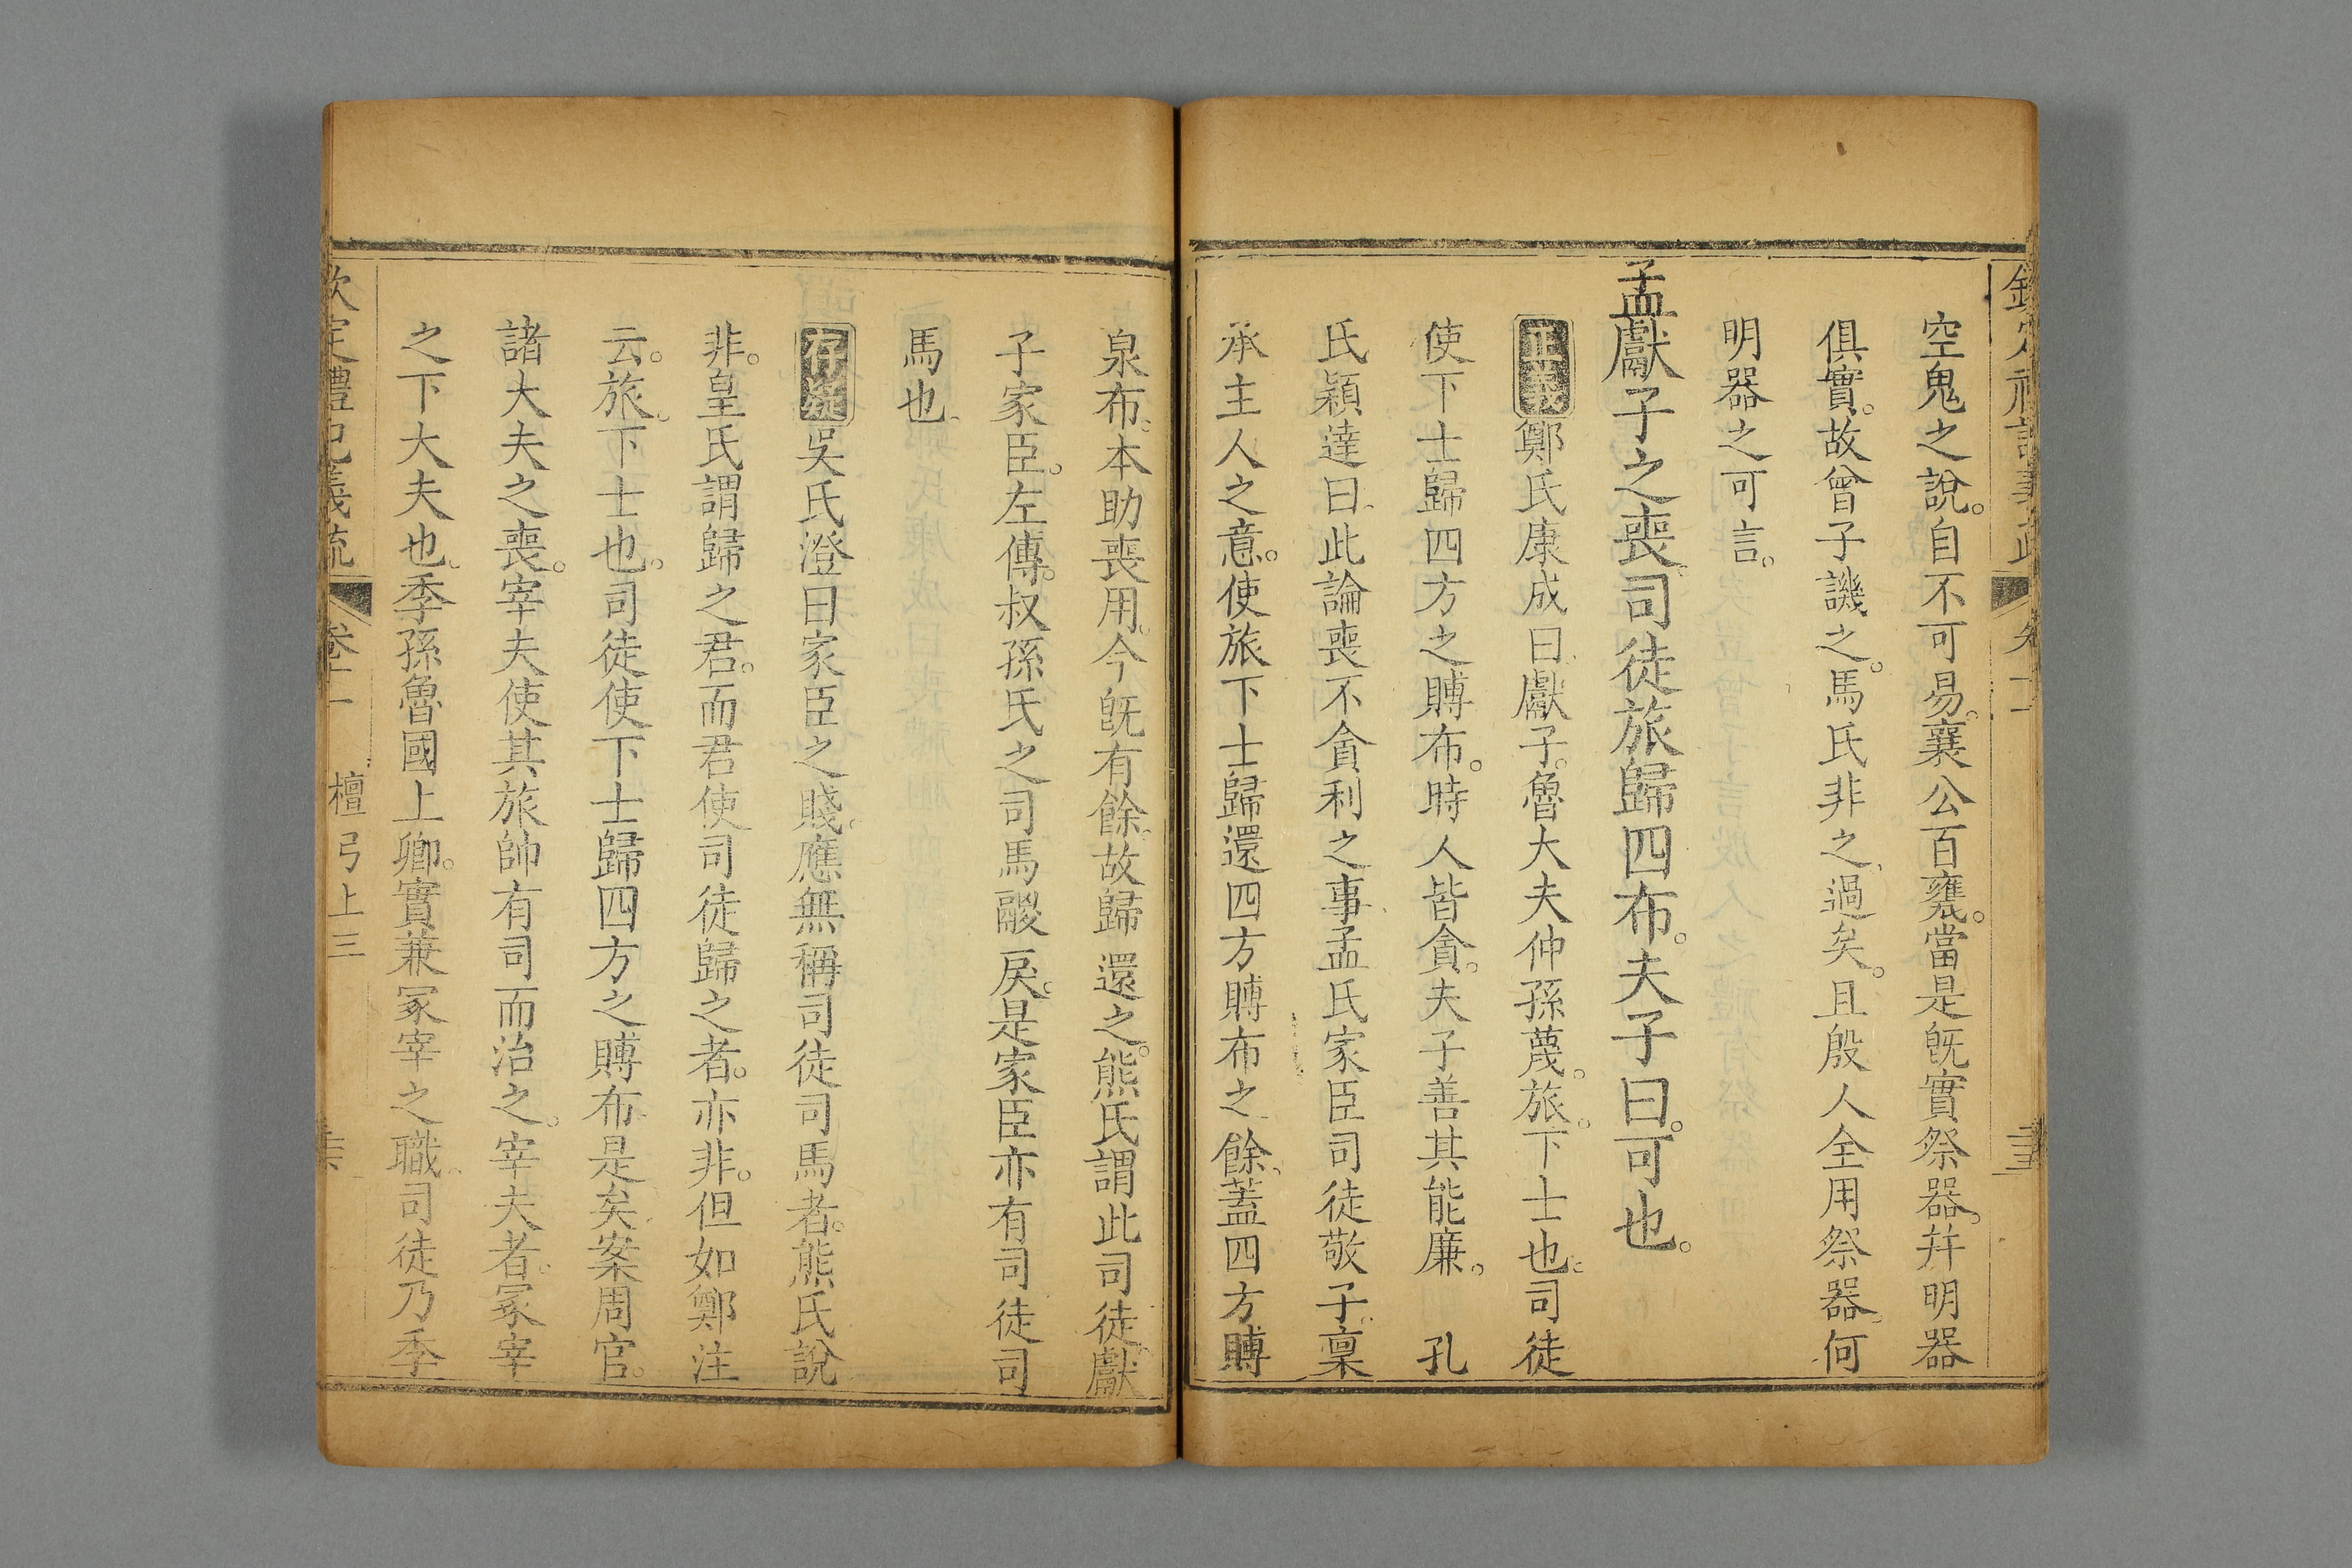 空鬼之說。自不可易。襄公百甕。當是旣實祭器。幷明器
俱實。故曾子譏之。馬氏非之、過矣。且殷人全用祭器、何
明器之可言。
孟獻子之喪、司徒旅歸四布。夫子曰。可也。
正義鄭氏康成曰、獻子。魯大夫仲孫蔑。旅。下士也。司徒
使下士歸四方之賻布。時人皆貪。夫子善其能廉。 孔
氏穎達曰、此論喪不貪利之事、孟氏家臣司徒敬子、稟
承主人之意。使旅下士歸還四方賻布之餘、蓋四方賻
泉布。本助喪用。今旣有餘、故歸還之。熊氏謂此司徒、獻
子家臣。左傳。叔孫氏之司馬鬷戾。是家臣亦有司徒司
馬也、
存疑吳氏澄曰家臣之賤。應無稱司徒司馬者。熊氏說
非。皇氏謂歸之君。而君使司徒歸之者。亦非。但如鄭注
云。旅。下士也。司徒使下士歸四方之賻布是矣案周官。
諸大夫之喪。宰夫使其旅帥有司而治之。宰夫者。冢宰
之下大夫也。季孫魯國上卿。實兼冢宰之職、司徒乃季
欽定禮記義疏 卷十一 檀弓上三